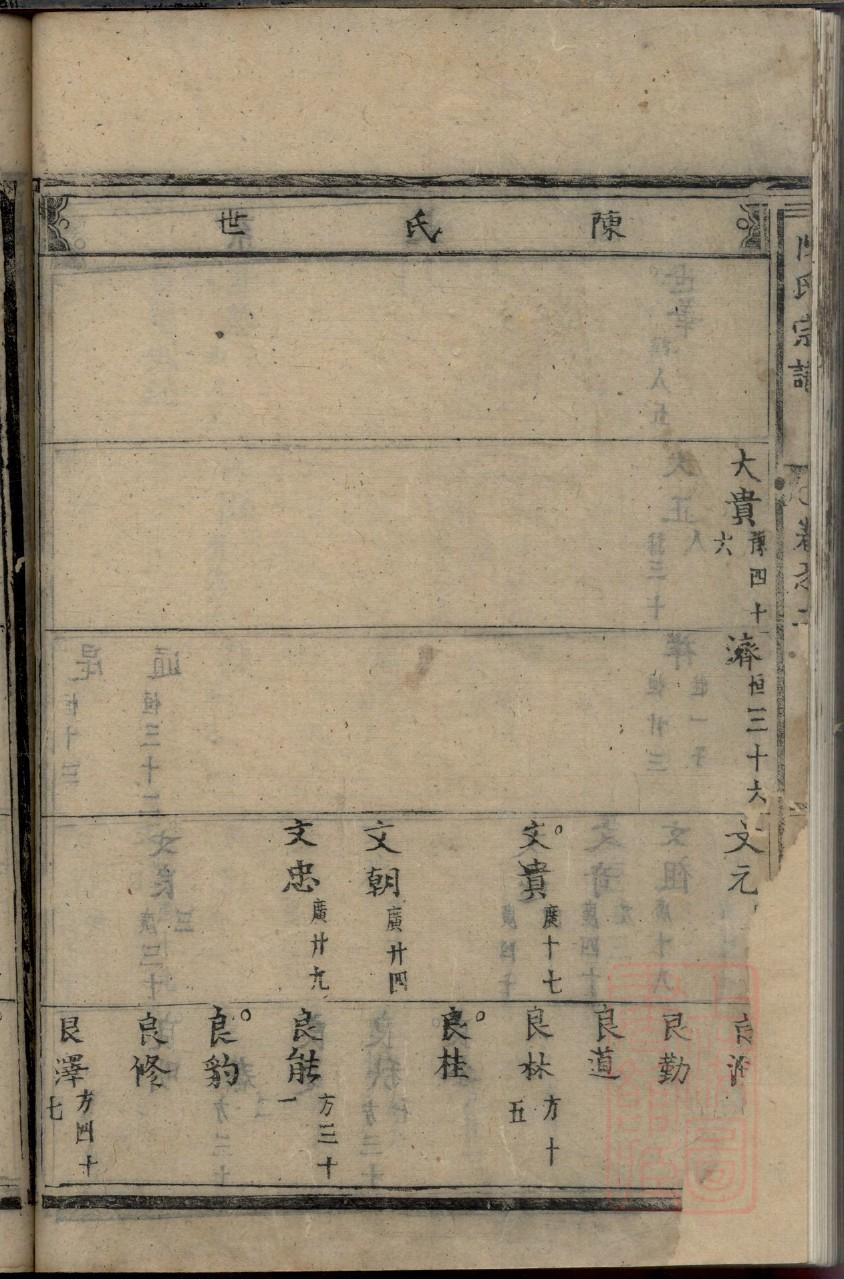 陳氏世
氏宗譜
大貴 豫四十六
濟 恒三十六
文元
文貴 廣十七
文朝 廣廿四
文忠 廣廿九
良勤
良道
良林 方十五
良桂
良能 方三十一
良豹
良修
良澤 方四十七